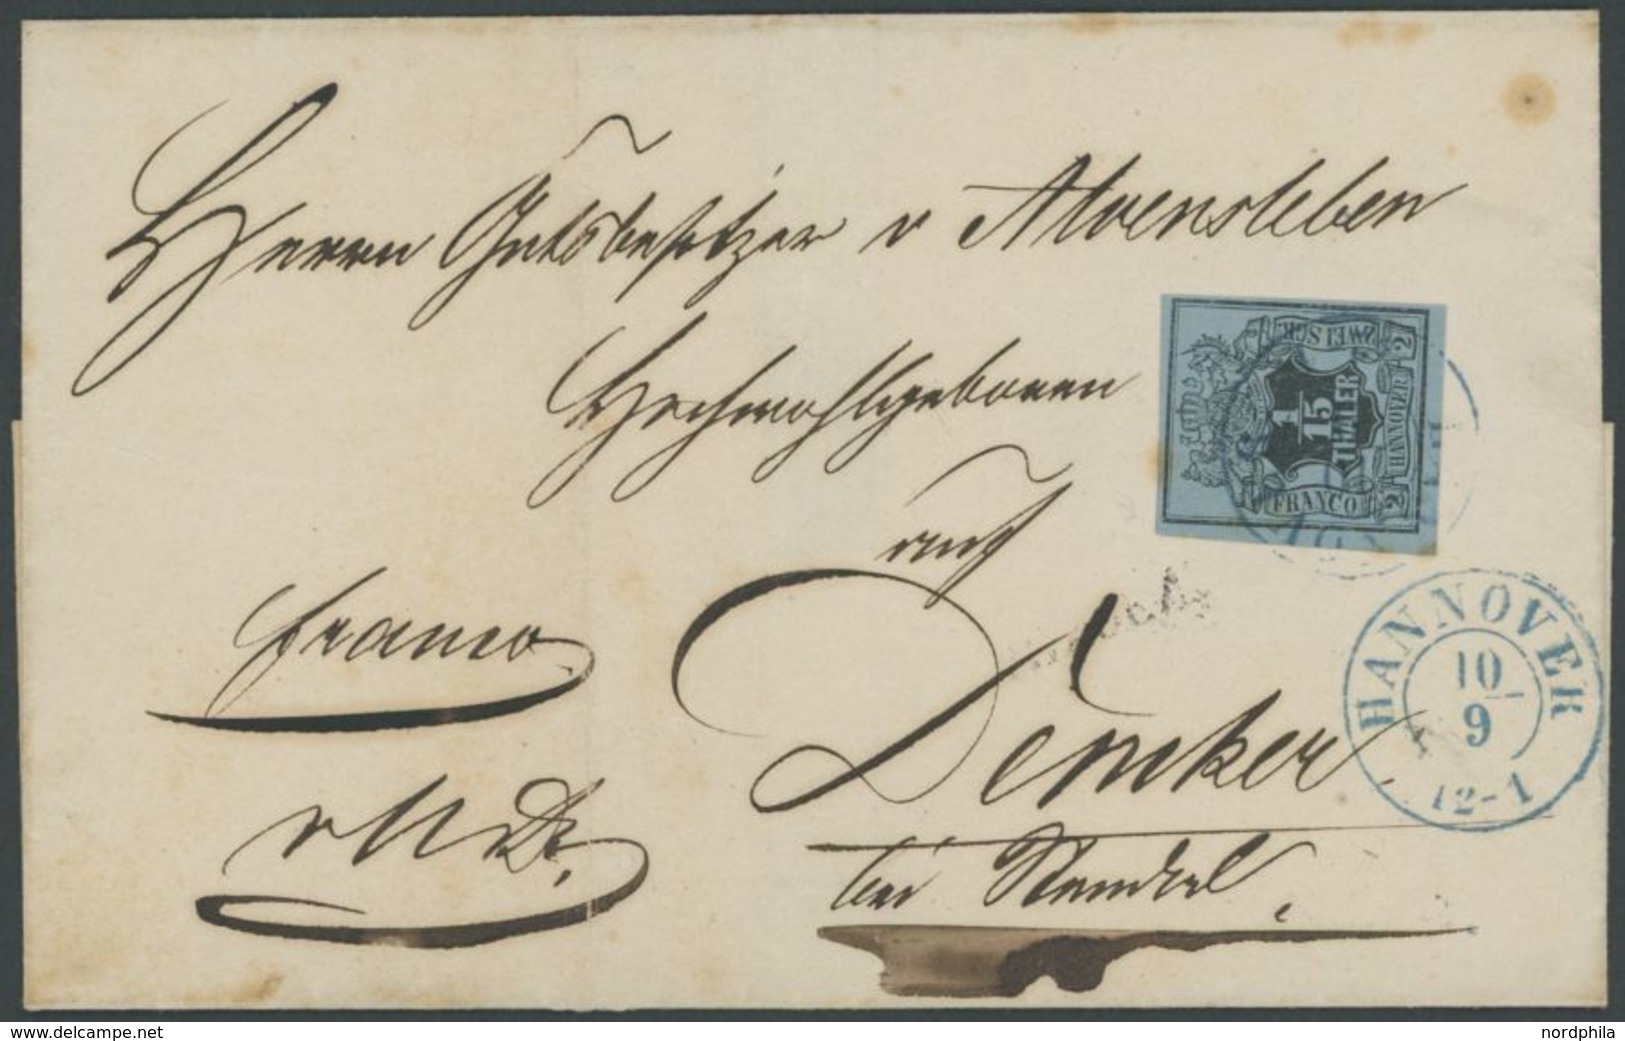 Herrn Gutsbesitzer v Alvensleben
Hochwohlgeboren
auf
Demker
bei Stendal.
franco
ZWEI SGR.
2
1
15
THALER
HANNOVER
FRANCO
2
HANNOVER
10
9
12-1
www.delcampe.net
nordphila